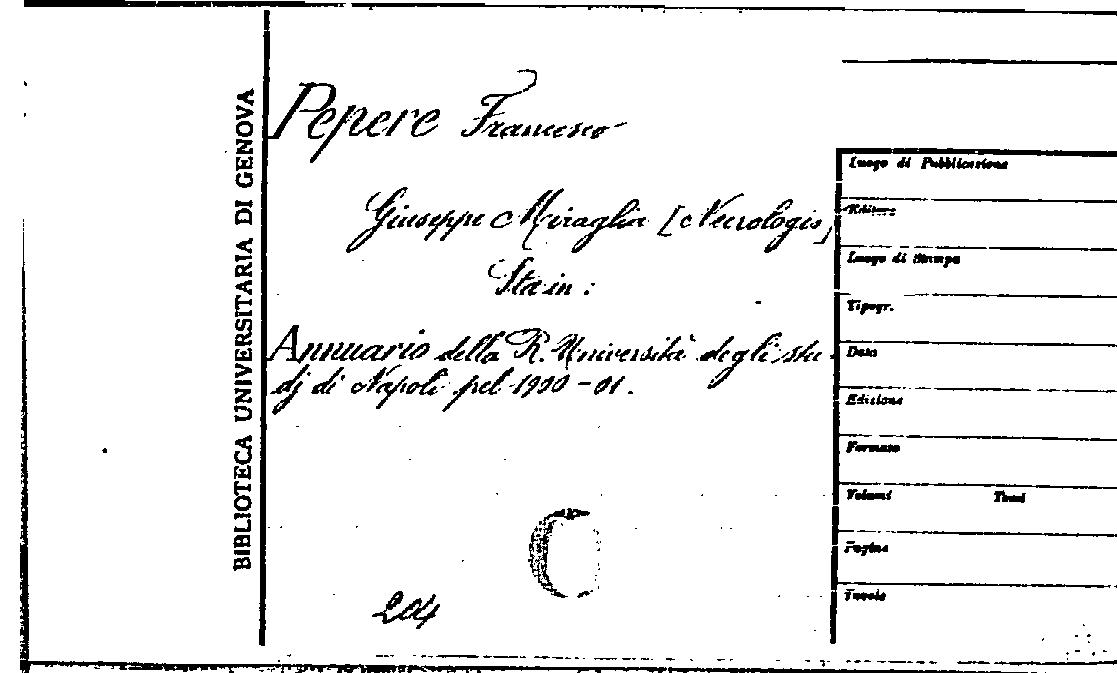 BIBLIOTECA UNIVERSITARIA DI GENOVA
Pepere Francesco
Giuseppe Miraglia [Necrologio]
Sta in:
Annuario della R. Università degli stu-
dj di Napoli pel 1900-01.
204
Luogo di Pubblicazione
Editore
Luogo di Stampa
Tipogr.
Data
Edizione
Formato
Volumi Tomi
Pagine
Tavole